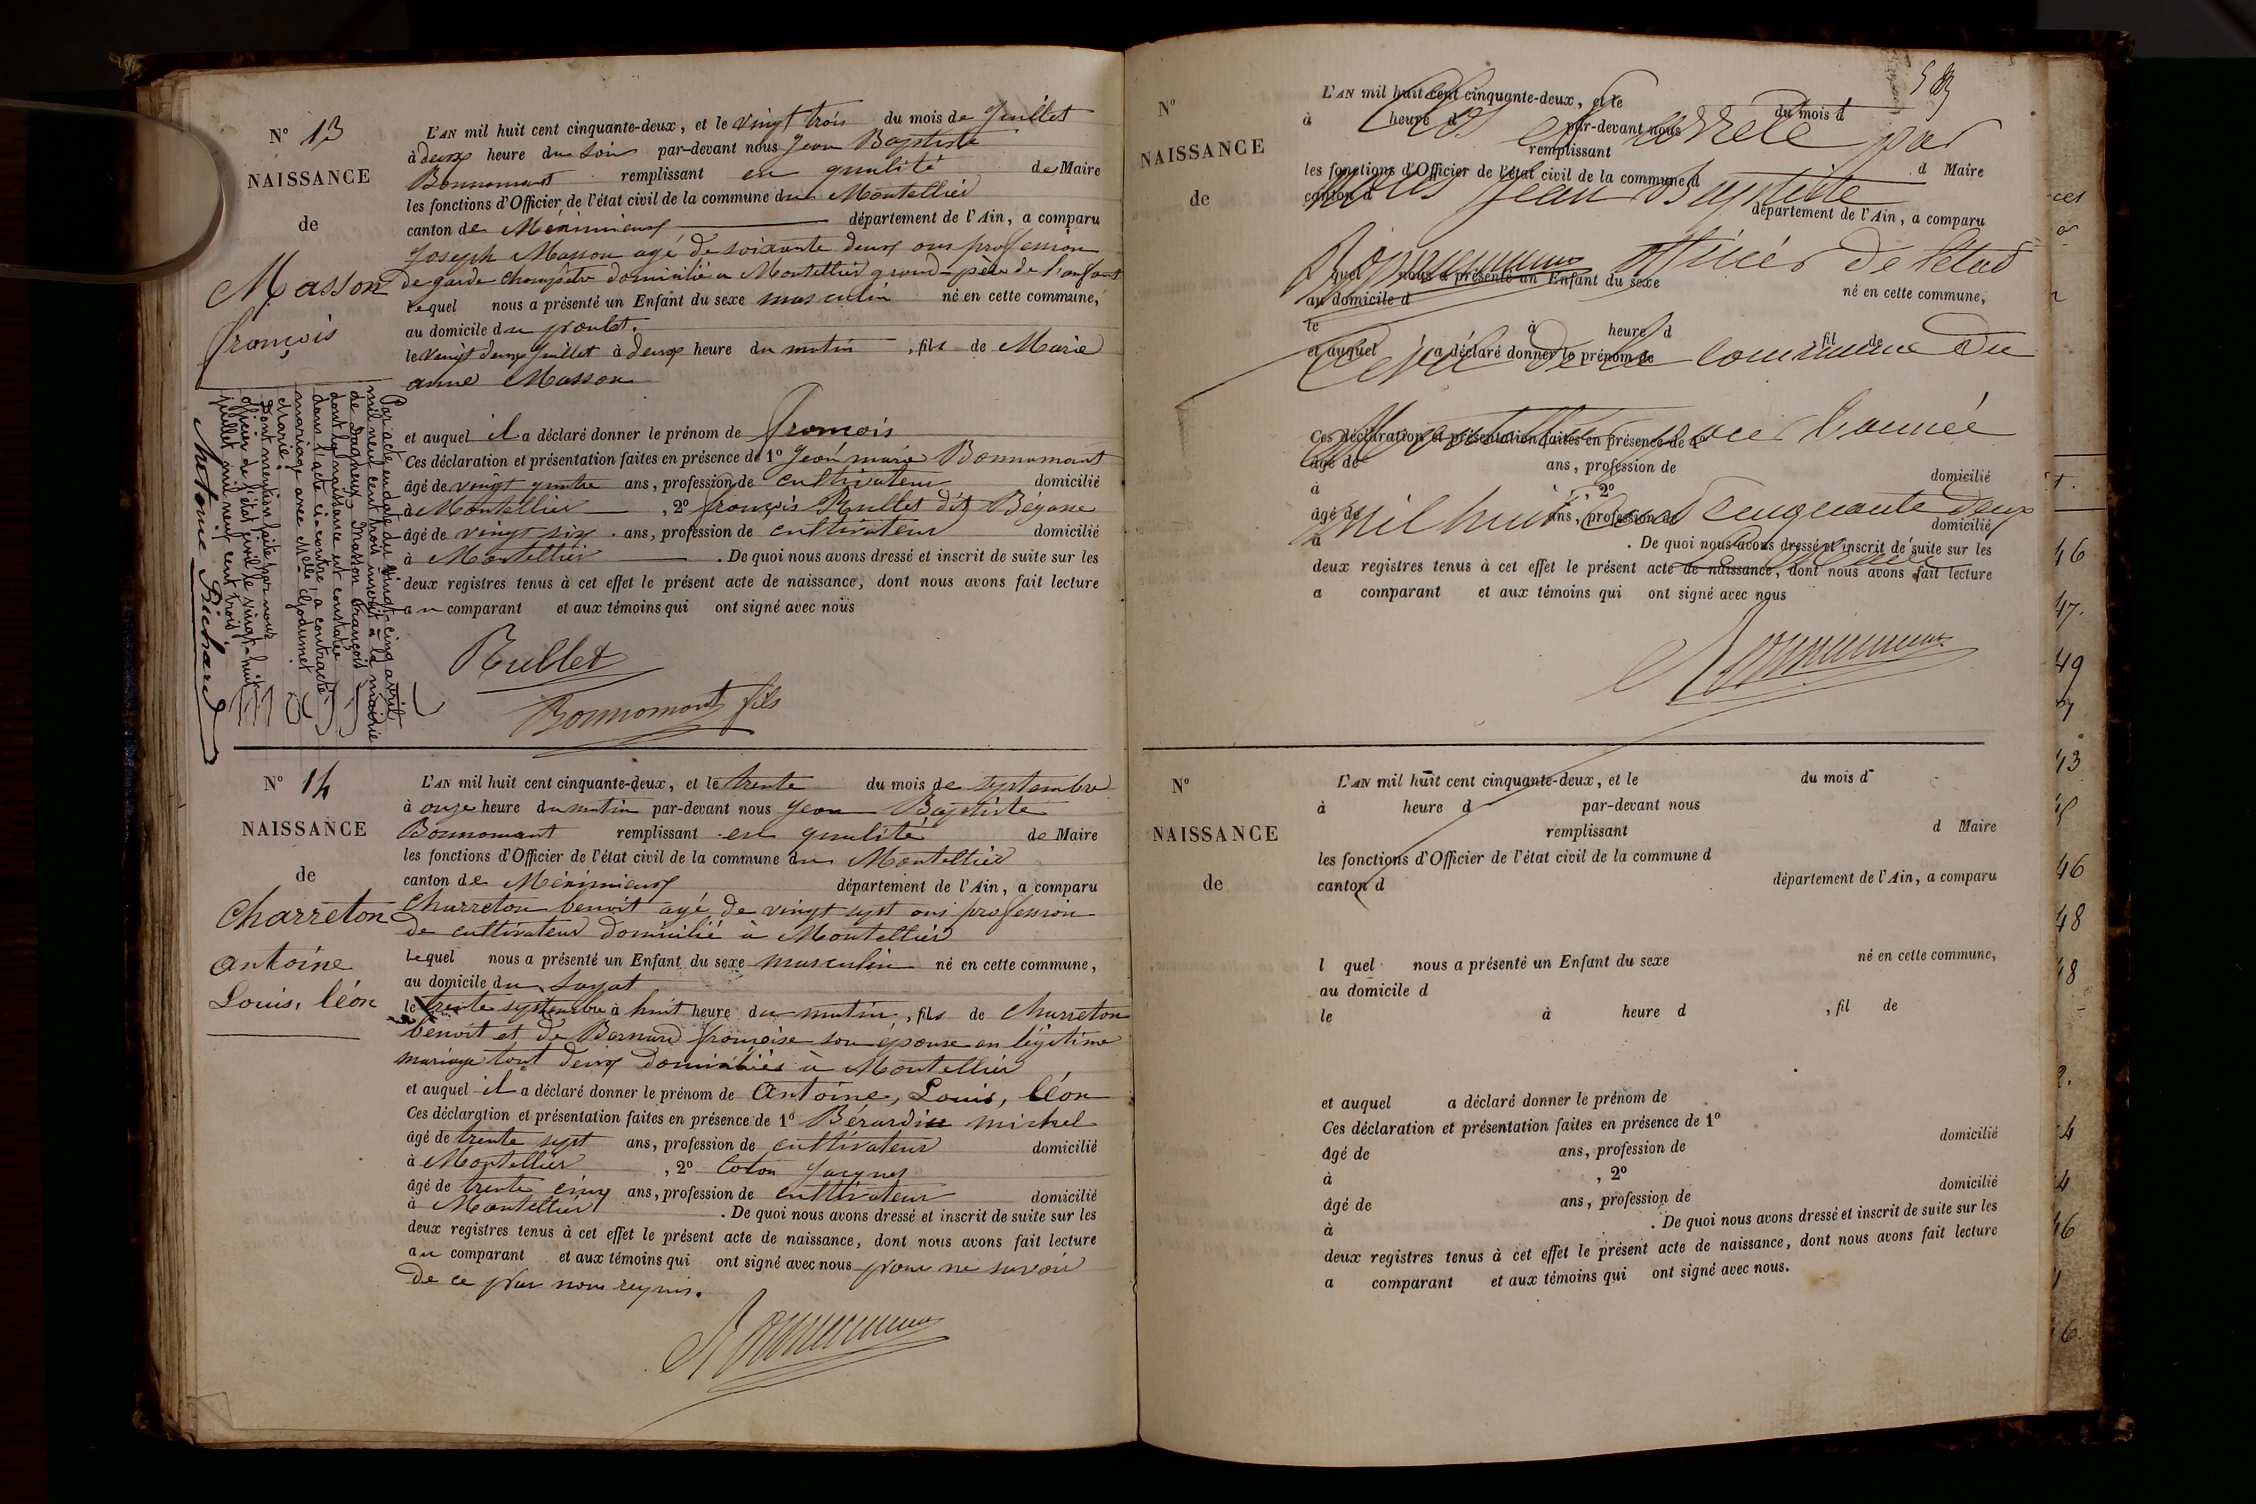 N° 13
NAISSANCE
de
Masson
françois
L'AN mil huit cent cinquante-deux, et le vingt trois du mois de Juillet
à deux heure du soir par-devant nous Jean Baptiste
Bonnomant remplissant en qualité de Maire
les fonctions d'Officier de l'état civil de la commune du Montellier
canton de Méximieux département de l'Ain, a comparu
Joseph Masson agé de soixante deux ans profession
de garde champêtre domicilié a Montellier grand-père de l'enfant
lequel nous a présenté un Enfant du sexe masculin né en cette commune,
au domicile du
le vingt deux Juillet à deux heure du matin, fils de Marie
anne Masson
et auquel il a déclaré donner le prénom de françois
Ces déclaration et présentation faites en présence de 1° Jean marie Bonnomant
âgé de vingt quatre ans, profession de cultivateur domicilié
à Montellier, 2° françois Rullet dit Bégasse
âgé de vingt six ans, profession de cultivateur domicilié
à Montellier. De quoi nous avons dressé et inscrit de suite sur les
deux registres tenus à cet effet le présent acte de naissance, dont nous avons fait lecture
au comparant et aux témoins qui ont signé avec nous
Rullet
Bonnomant fils
Par acte en date du vingt-cinq avril
mil neuf cent trois inscrit à la mairie
de Dagneux Masson François
dont la naissance est constatée
dans l'acte ci-contre, a contracté
mariage avec Melle Godumet
Marie.
Dont mention faite par nous
officier de l'état civil le vingt-huit
juillet mil neuf cent trois.
Antoine Pichard
N° 14
NAISSANCE
de
Charreton
antoine
Louis, léon
L'AN mil huit cent cinquante-deux, et le trente du mois de septembre
à onze heure du matin par-devant nous Jean Baptiste
Bonnomant remplissant en qualité de Maire
les fonctions d'Officier de l'état civil de la commune du Montellier
canton de Méximieux département de l'Ain, a comparu
Charreton benoit agé de vingt sept ans profession
de cultivateur domicilié à Montellier
lequel nous a présenté un Enfant du sexe masculin né en cette commune,
au domicile du Sayat
le trente septembre à huit heure du matin, fils de Charreton
benoit et de Bernard françoise son épouse en légitime
mariage tout deux domiciliés à Montellier
et auquel il a déclaré donner le prénom de antoine, Louis, léon
Ces déclaration et présentation faites en présence de 1° Bérardin michel
âgé de trente sept ans, profession de cultivateur domicilié
à Montellier, 2° Coton
âgé de trente cinq ans, profession de cultivateur domicilié
à Montellier. De quoi nous avons dressé et inscrit de suite sur les
deux registres tenus à cet effet le présent acte de naissance, dont nous avons fait lecture
au comparant et aux témoins qui ont signé avec nous pour ne savoir
de ce par nous requis.
Bonnomant
N°
NAISSANCE
de
L'AN mil huit cent cinquante-deux, et le du mois d
à heure d par-devant nous
remplissant d Maire
les fonctions d'Officier de l'état civil de la commune d
canton d département de l'Ain, a comparu
l quel nous a présenté un Enfant du sexe né en cette commune,
au domicile d
le à heure d fil de
et auquel a déclaré donner le prénom de
Ces déclaration et présentation faites en présence de 1°
âgé de ans, profession de domicilié
à , 2°
âgé de ans, profession de domicilié
à . De quoi nous avons dressé et inscrit de suite sur les
deux registres tenus à cet effet le présent acte de naissance, dont nous avons fait lecture
a comparant et aux témoins qui ont signé avec nous
Clos et arrêté par
nous Jean Baptiste
Bonnomant officier de l'état
Civil de la commune du
Montellier pour l'année
mil huit cent cinquante deux
Bonnomant
N°
NAISSANCE
de
L'AN mil huit cent cinquante-deux, et le du mois d
à heure d par-devant nous
remplissant d Maire
les fonctions d'Officier de l'état civil de la commune d
canton d département de l'Ain, a comparu
l quel nous a présenté un Enfant du sexe né en cette commune,
au domicile d
le à heure d , fil de
et auquel a déclaré donner le prénom de
Ces déclaration et présentation faites en présence de 1°
âgé de ans, profession de domicilié
à , 2°
âgé de ans, profession de domicilié
à . De quoi nous avons dressé et inscrit de suite sur les
deux registres tenus à cet effet le présent acte de naissance, dont nous avons fait lecture
a comparant et aux témoins qui ont signé avec nous.
46
47.
49
43
46
48
48